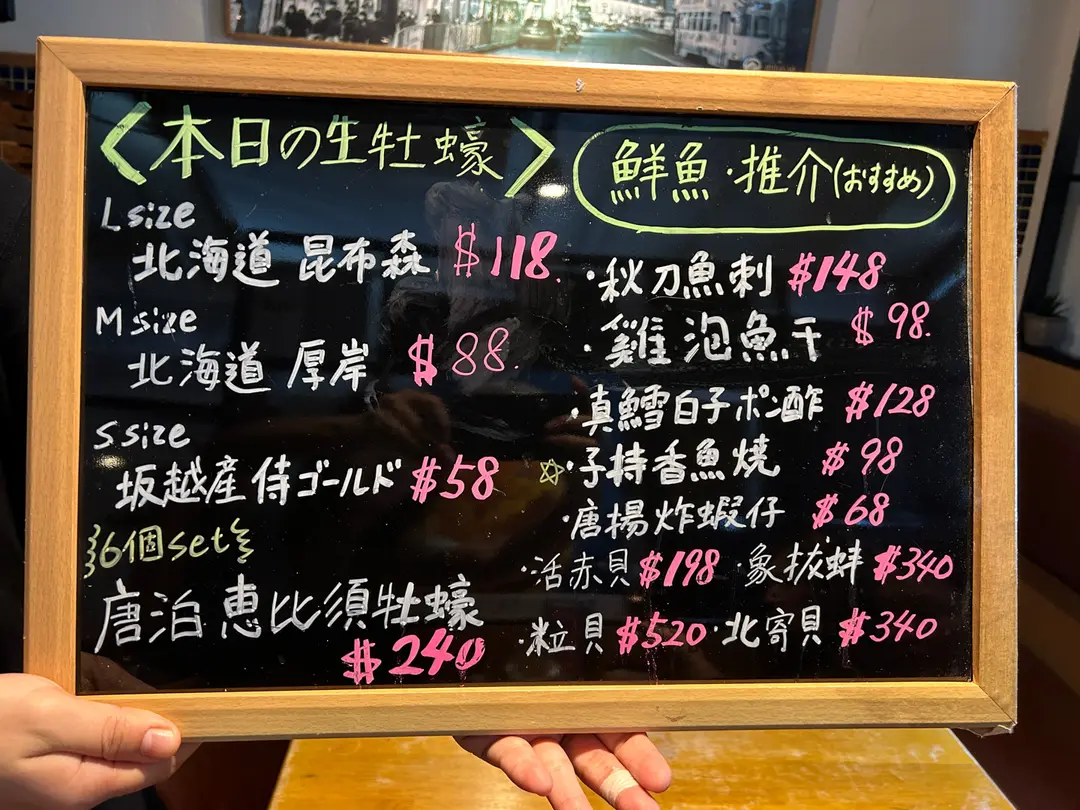 <本日の生牡蠣>
L size
北海道 昆布森 $118.
M size
北海道 厚岸 $88.
S size
坂越産 侍ゴールド $58
6個set
唐泊 恵比須牡蠣
$240
鮮魚・推介(おすすめ)
・秋刀魚刺 $148
・雞泡魚干 $98.
・真鱈白子ポン酢 $128
☆・子持香魚焼 $98
・唐揚炸蝦仔 $68
・活赤貝 $198 ・象拔蚌 $340
・粒貝 $520 ・北寄貝 $340